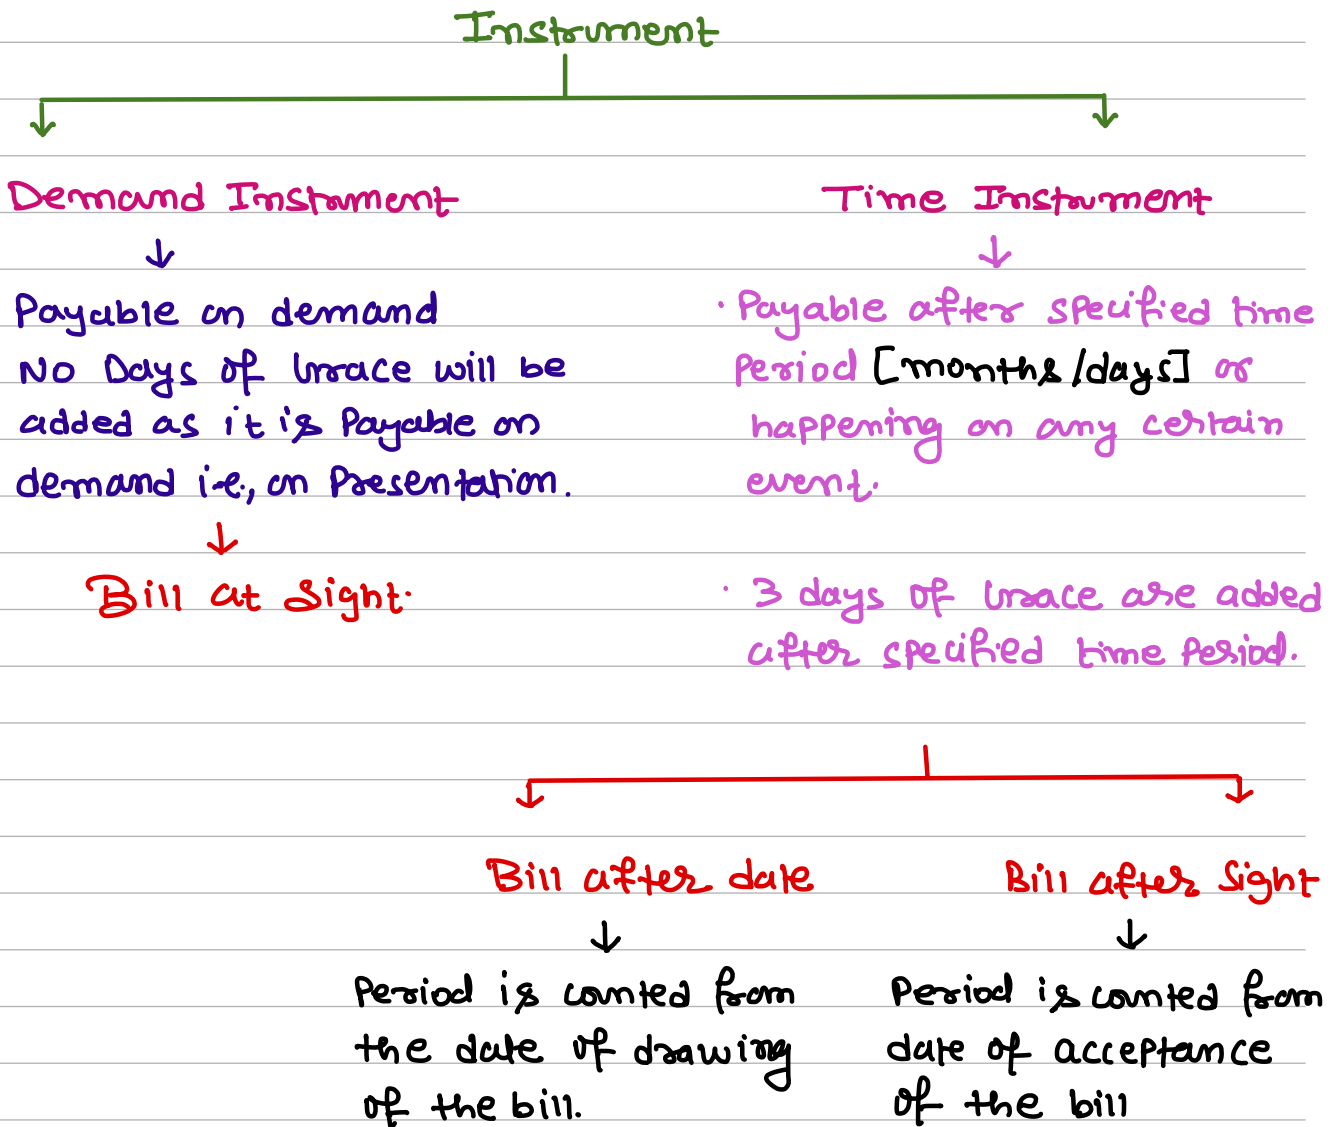 Instrument
Demand Instrument
Time Instrument
Payable on demand
No Days of Grace will be
added as it is Payable on
demand i.e., on Presentation.
Bill at Sight.
· Payable after specified time
Period [months/days] or
happening on any certain
event.
· 3 days of Grace are added
after specified time Period.
Bill after date
Bill after Sight
Period is counted from
the date of drawing
of the bill.
Period is counted from
date of acceptance
of the bill